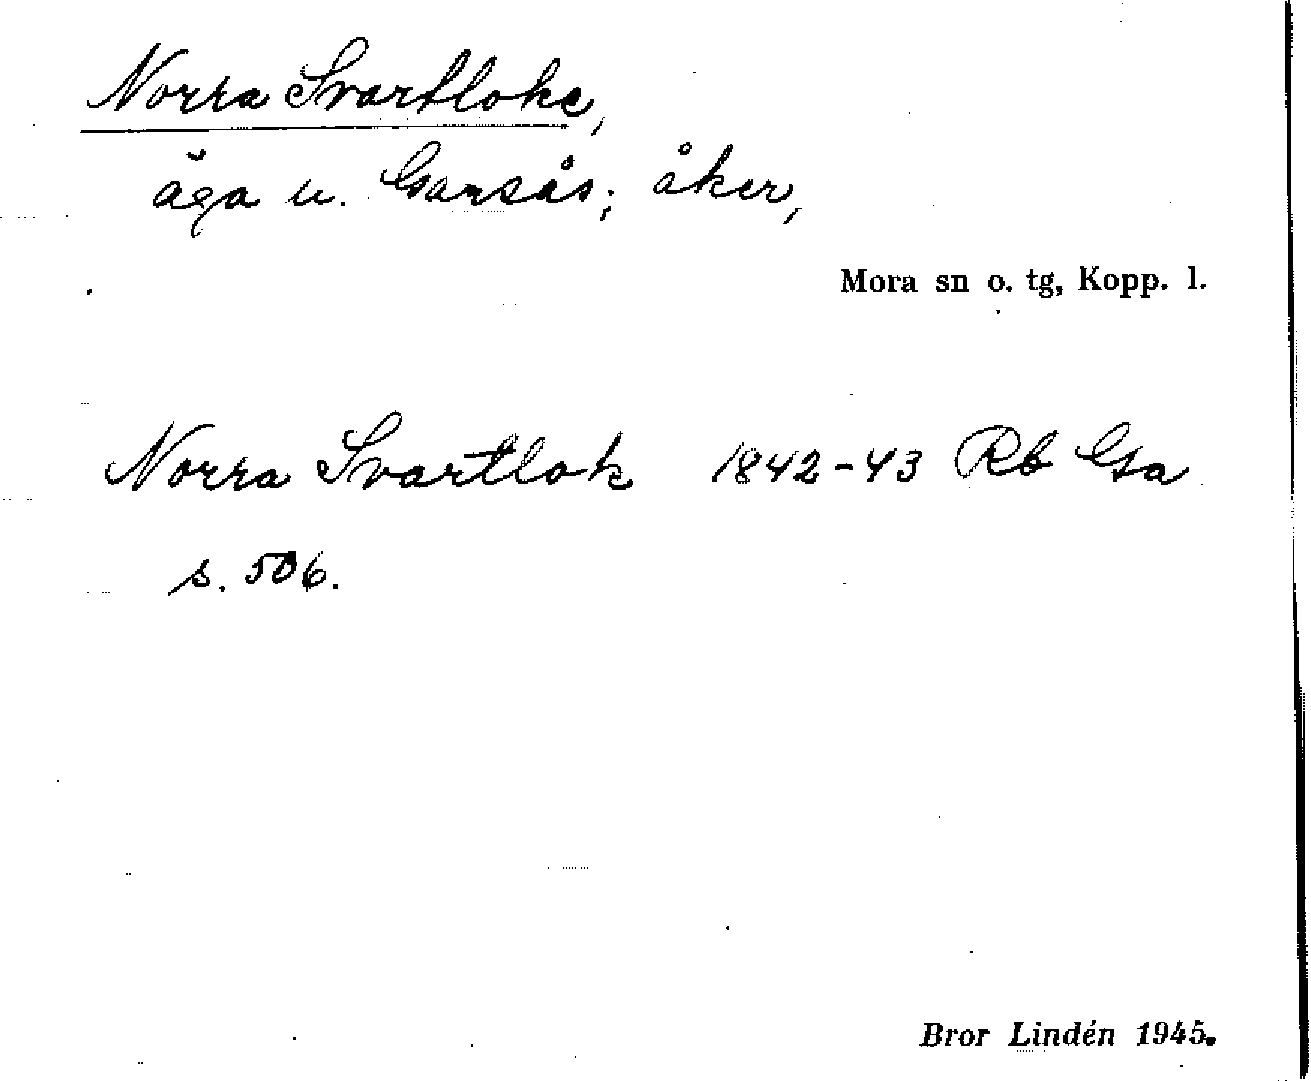 Norra Svartloke,
äga u. Garsås; åker,
Mora sn o. tg, Kopp. l.
Norra Svartlok 1842-43 Rb Ga
s. 506.
Bror Lindén 1945.